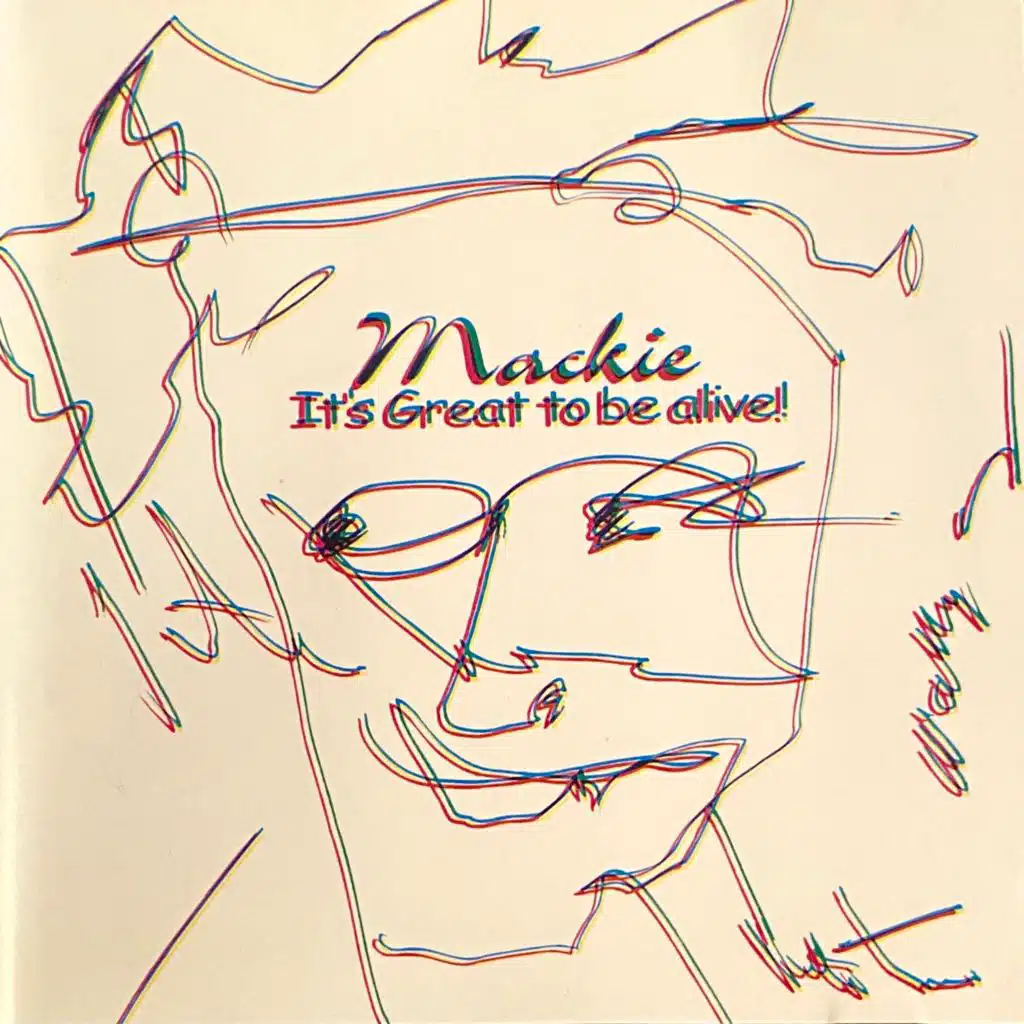 Mackie
It's Great to be alive!!